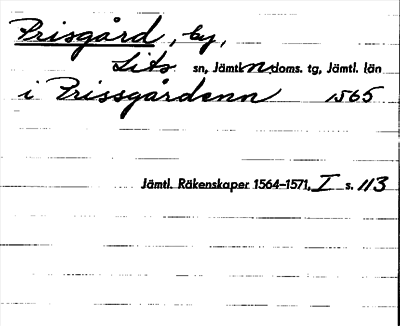 Prisgård, by,
Lits sn, Jämtl. n. doms. tg, Jämtl. län
i Prissgårdenn 1565
Jämtl. Räkenskaper 1564–1571, I s. 113